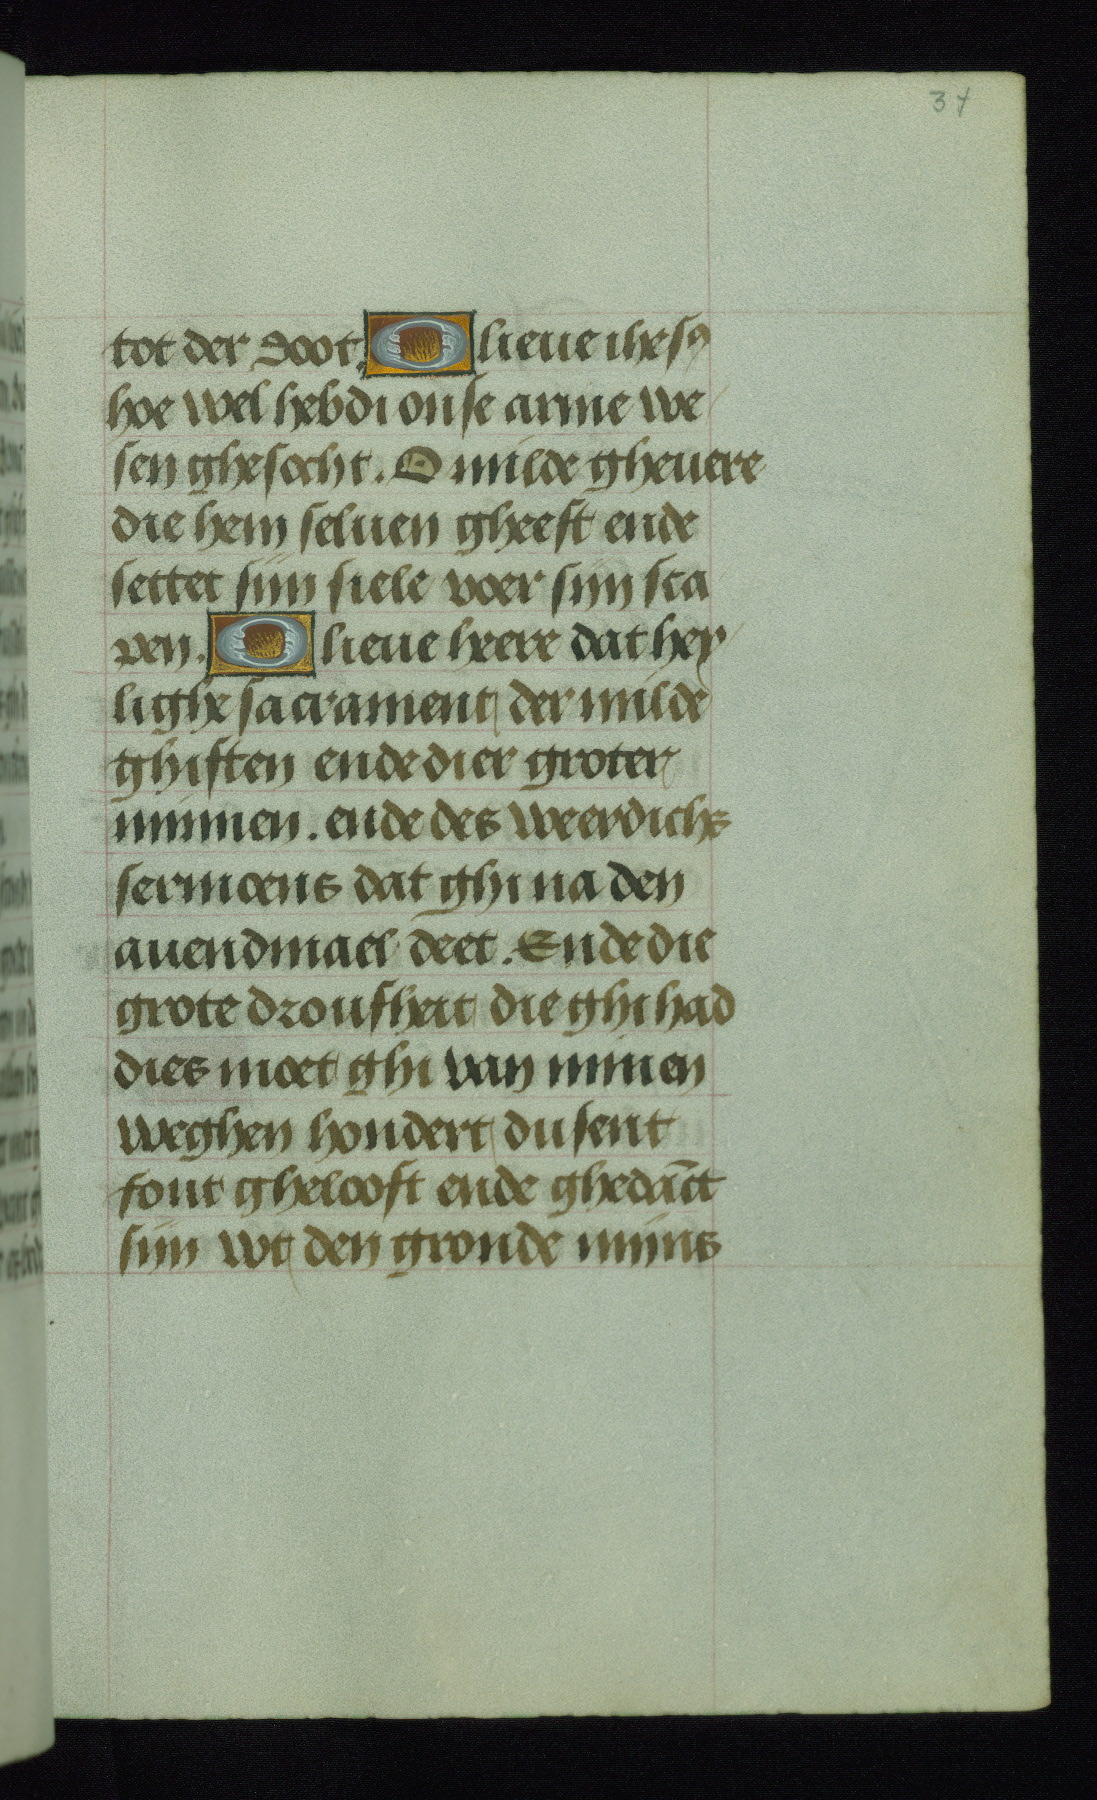 37
tot der doot. O lieue ihesꝰ
hoe wel hebdi onse arme we
sen ghesocht. O milde gheuere
die hem seluen gheeft ende
settet sijn siele voer sijn sca
pen. O lieue heere dat hey
lighe sacrament der milde
ghiften ende dier groter
minnen. ende des weerdichs
sermoens dat ghi na den
auendmael deet. Ende die
grote droufheit die ghi had
dies moet ghi van minen
weghen hondert dusent
fout ghelooft ende ghedāct
sijn wt den gronde mijns